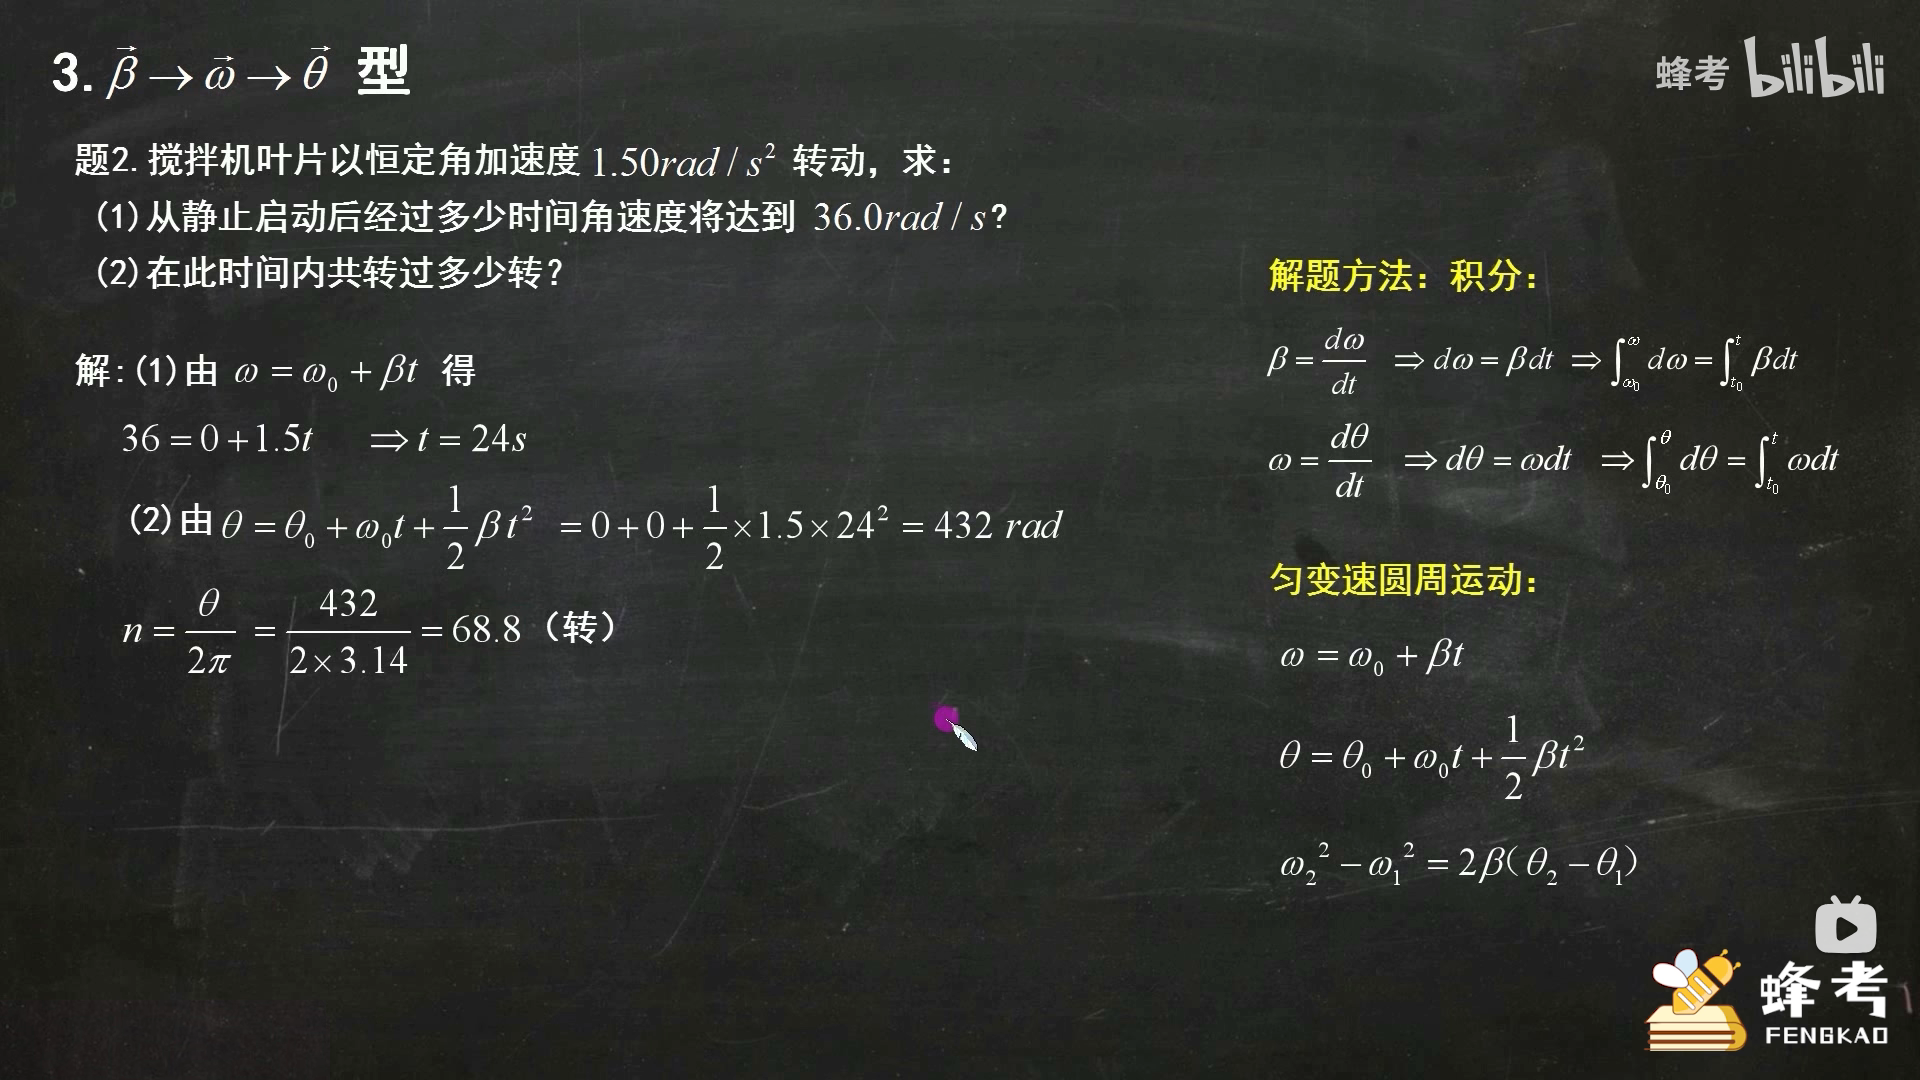 3. β⃗→ω⃗→θ⃗ 型
蜂考 bilibili
题2. 搅拌机叶片以恒定角加速度 1.50rad / s² 转动，求：
(1)从静止启动后经过多少时间角速度将达到 36.0rad / s？
(2)在此时间内共转过多少转？
解:(1)由 ω = ω₀ + βt 得
36 = 0 + 1.5t ⇒ t = 24s
(2)由 θ = θ₀ + ω₀t + 1/2 βt² = 0 + 0 + 1/2 ×1.5×24² = 432 rad
n = θ/2π = 432/2×3.14 = 68.8（转）
解题方法：积分：
β = dω/dt ⇒ dω = βdt ⇒ ∫_ω₀^ω dω = ∫_t₀^t βdt
ω = dθ/dt ⇒ dθ = ωdt ⇒ ∫_θ₀^θ dθ = ∫_t₀^t ωdt
匀变速圆周运动：
ω = ω₀ + βt
θ = θ₀ + ω₀t + 1/2 βt²
ω₂² − ω₁² = 2β（θ₂ − θ₁）
蜂考
FENGKAO